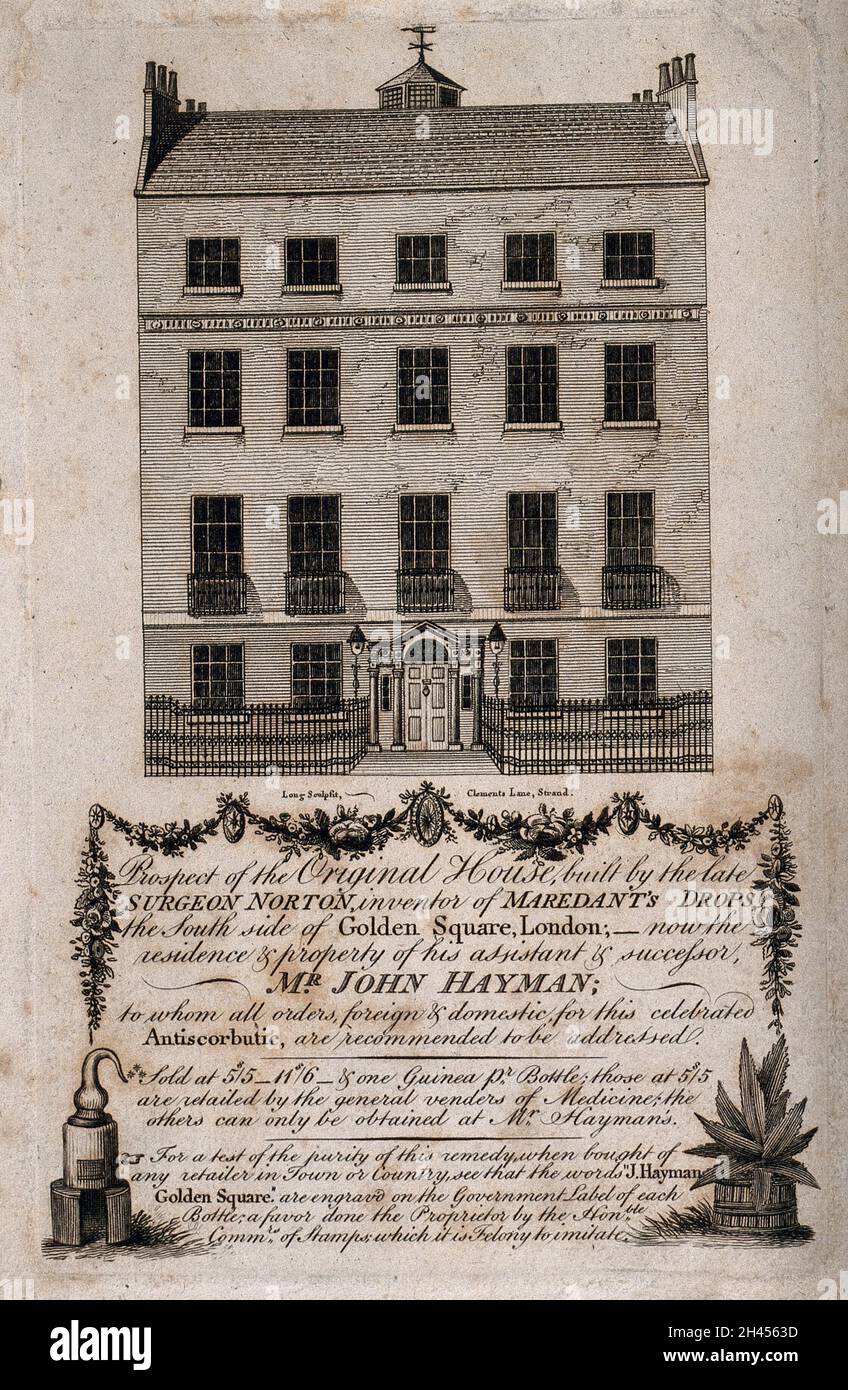 Long Sculpsit, Clements Lane, Strand.
Prospect of the Original House, built by the late
SURGEON NORTON, inventor of MAREDANT'S DROPS,
the South side of Golden Square, London; — now the
residence & property of his assistant & successor,
MR. JOHN HAYMAN;
to whom all orders, foreign & domestic, for this celebrated
Antiscorbutic, are recommended to be addressed.
Sold at 5s/5 — 11s/6 — & one Guinea pr. Bottle; those at 5s/5
are retailed by the general venders of Medicine; the
others can only be obtained at Mr. Hayman's.
☞ For a test of the purity of this remedy, when bought of
any retailer in Town or Country, see that the words "J. Hayman
Golden Square." are engrav'd on the Government Label of each
Bottle; a favor done the Proprietor by the Honble
Commrs. of Stamps; which it is Felony to imitate.
alamy
alamy
Image ID: 2H4563D
www.alamy.com